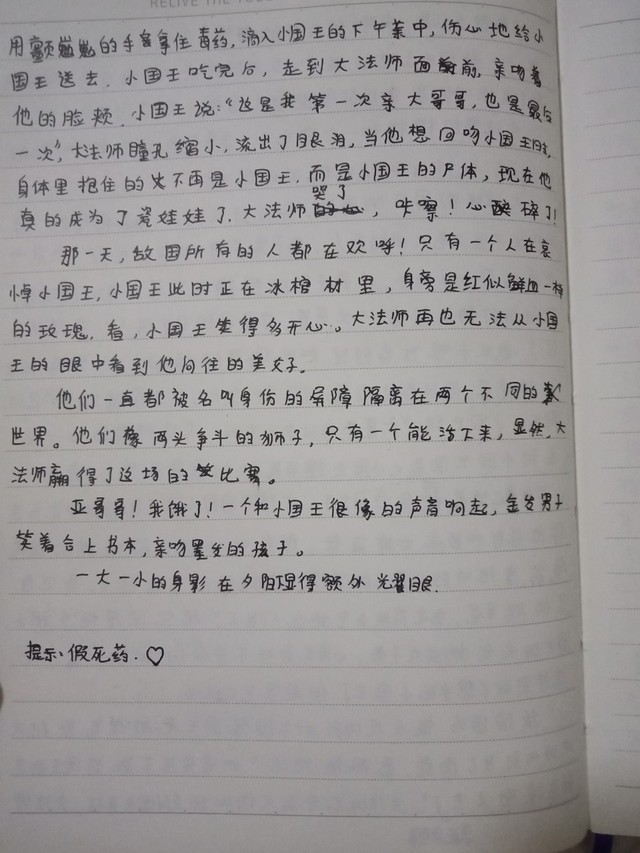 RELIVE THE
用颤巍巍的手拿住毒药,滴入小国王的下午茶中,伤心地给小
国王送去.小国王吃完后,走到大法师面前,亲吻着
他的脸颊.小国王说:“这是我第一次亲大哥哥,也是最后
一次”,大法师瞳孔缩小,流出了眼泪,当他想回吻小国王时,
身体里抱住的不再是小国王.而是小国王的尸体,现在他
真的成为了瓷娃娃了.大法师哭了,咔嚓!心碎了!
那一天,敌国所有的人都在欢呼!只有一个人在哀
悼小国王,小国王此时正在冰棺材里,身旁是红似鲜血一样
的玫瑰.看,小国王笑得多开心。大法师再也无法从小国
王的眼中看到他向往的美好.
他们一直都被名叫身份的屏障隔离在两个不同的
世界。他们像两头争斗的狮子,只有一个能活下来,显然,大
法师赢得了这场的比赛。
亚哥哥!我饿了!一个和小国王很像的声音响起,金发男子
笑着合上书本,亲吻墨发的孩子。
一大一小的身影在夕阳显得额外光耀眼.
提示:假死药.♡